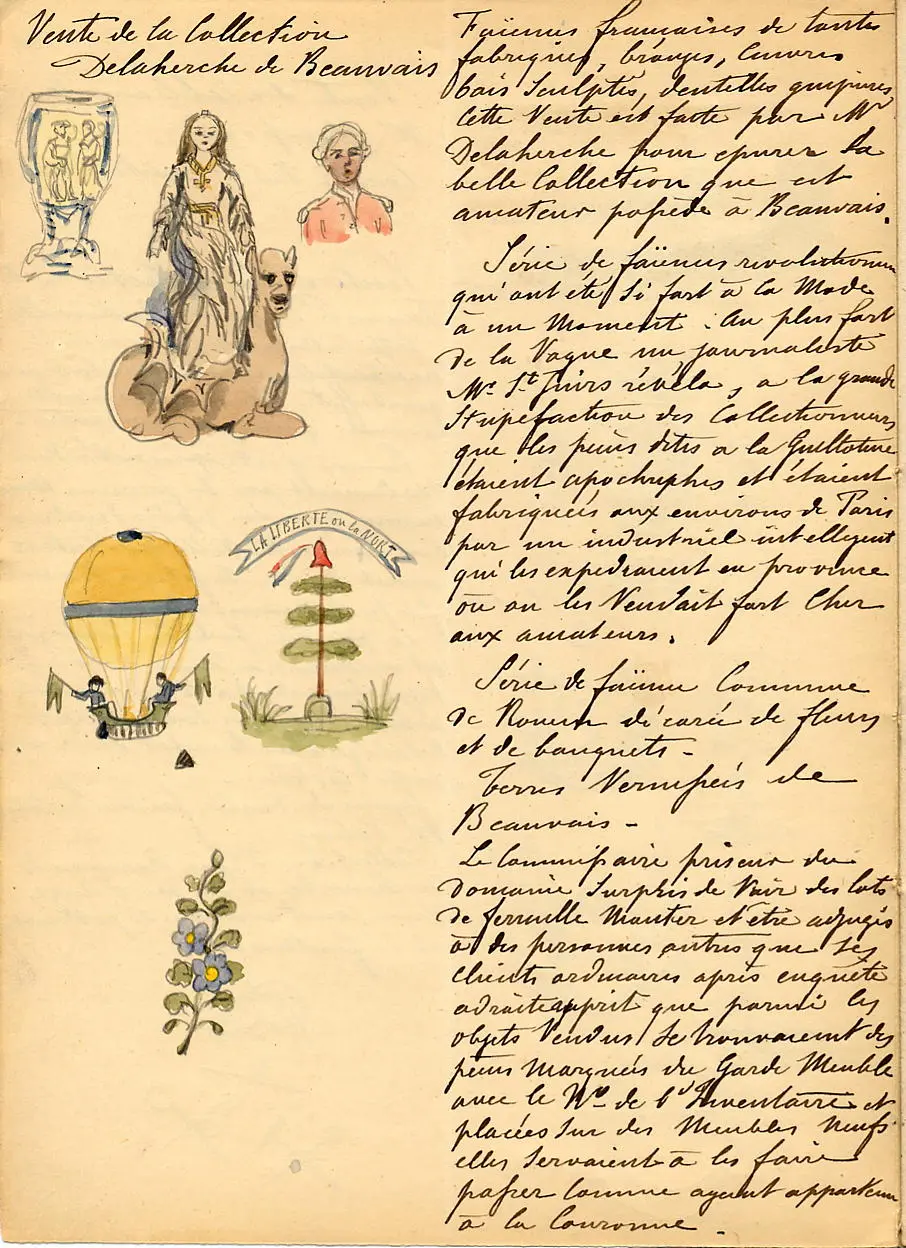 Vente de la Collection
Delaherche de Beauvais
LA LIBERTE ou la MORT
Faïences françaises de toutes
fabriques, bronzes, cuivres
bois Sculptés, dentelles guipures
Cette Vente est faite par Mr
Delaherche pour epurer Sa
belle Collection que cet
amateur possède à Beauvais.
Série de faïences revolutionn
qui ont été Si fort à la Mode
à un Moment. Au plus fort
de la Vogue un journaliste
Mr. St révéla, a la grande
Stupefaction des Collectionneurs
que les pièces dites a la Guillotine
étaient apochryphes et étaient
fabriquées aux environs de Paris
par un industriel intelligent
qui les expediaient en province
où on les Vendait fort Cher
aux amateurs.
Série de faïence Commune
de Rouen décorée de fleurs
et de bouquets -
Terres Vernissées de
Beauvais -
Le Commissaire priseur du
Domaine Surpris de Voir des lots
de ferraille Monter et être adjugés
à des personnes autres que Ses
Clients ordinaires après enquête
adroite apprit que parmi les
objets Vendus Se trouvaient des
pièces Marquées du Garde Meuble
avec le No de l'Inventaire et
placées Sur des Meubles Neufs
elles Servaient à les faire
passer Comme ayant appartenu
à la Couronne.